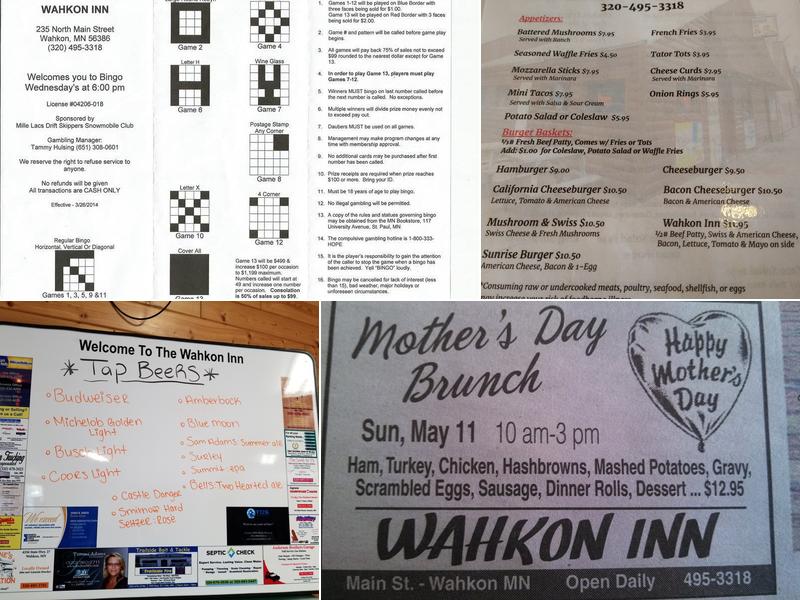 WAHKON INN
235 North Main Street
Wahkon, MN 56386
(320) 495-3318
Welcomes you to Bingo
Wednesday's at 6:00 pm
License #04206-018
Sponsored by
Mille Lacs Drift Skippers Snowmobile Club
Gambling Manager:
Tammy Hulsing (651) 308-0601
We reserve the right to refuse service to
anyone.
No refunds will be given
All transactions are CASH ONLY
Effective - 3/26/2014
Regular Bingo
Horizontal, Vertical Or Diagonal
Games 1, 3, 5, 9 &11
Game 2
Game 4
Letter H
Game 6
Wine Glass
Game 7
Postage Stamp
Any Corner
Game 8
Letter X
Game 10
4 Corner
Game 12
Cover All
Game 13 will be $499 &
increase $100 per occasion
to $1,199 maximum.
Numbers called will start at
49 and increase one number
per occasion. Consolation
is 50% of sales up to $99.
1. Games 1-12 will be played on Blue Border with
three faces being sold for $1.00.
Game 13 will be played on Red Border with 3 faces
being sold for $2.00.
2. Game # and pattern will be called before game play
begins.
3. All games will pay back 75% of sales not to exceed
$99 rounded to the nearest dollar except for Game
13.
4. In order to play Game 13, players must play
Games 7-12.
5. Winners MUST bingo on last number called before
the next number is called. No exceptions.
6. Multiple winners will divide prize money evenly not
to exceed pay out.
7. Daubers MUST be used on all games.
8. Management may make program changes at any
time with membership approval.
9. No additional cards may be purchased after first
number has been called.
10. Prize receipts are required when prize reaches
$100 or more. Bring your ID.
11. Must be 18 years of age to play bingo.
12. No illegal gambling will be permitted.
13. A copy of the rules and statues governing bingo
may be obtained from the MN Bookstore, 117
University Avenue, St. Paul, MN
14. The compulsive gambling hotline is 1-800-333-
HOPE
15. It is the player's responsibility to gain the attention
of the caller to stop the game when a bingo has
been achieved. Yell "BINGO" loudly.
16. Bingo may be cancelled for lack of interest (less
than 15), bad weather, major holidays or
unforeseen circumstances.
320-495-3318
Appetizers:
Battered Mushrooms $7.95
Served with Ranch
French Fries $3.95
Seasoned Waffle Fries $4.50
Tator Tots $3.95
Mozzarella Sticks $7.95
Served with Marinara
Cheese Curds $7.95
Served with Marinara
Mini Tacos $7.95
Served with Salsa & Sour Cream
Onion Rings $5.95
Potato Salad or Coleslaw $5.95
Burger Baskets:
1/3# Fresh Beef Patty, Comes w/ Fries or Tots
Add: $1.00 for Coleslaw, Potato Salad or Waffle Fries
Hamburger $9.00
Cheeseburger $9.50
California Cheeseburger $10.50
Lettuce, Tomato & American Cheese
Bacon Cheeseburger $10.50
Bacon & American Cheese
Mushroom & Swiss $10.50
Swiss Cheese & Fresh Mushrooms
Wahkon Inn
1/2# Beef Patty, Swiss & American Cheese,
Bacon, Lettuce, Tomato & Mayo on side
Sunrise Burger $10.50
American Cheese, Bacon & 1~Egg
*Consuming raw or undercooked meats, poultry, seafood, shellfish, or eggs
may increase risk of foodborne illness
Welcome To The Wahkon Inn
*Tap Beers*
Budweiser
Michelob Golden
Light
Busch Light
Coors Light
Castle Danger
Smirnoff Hard
Seltzer: Rose
Amberbock
Blue moon
Sam Adams: Summer ale
Surley
Summit: epa
Bells: Two Hearted ale
Trailside Bait & Tackle
SEPTIC CHECK
Mother's Day
Brunch
Happy
Mother's
Day
Sun, May 11 10 am-3 pm
Ham, Turkey, Chicken, Hashbrowns, Mashed Potatoes, Gravy,
Scrambled Eggs, Sausage, Dinner Rolls, Dessert ... $12.95
WAHKON INN
Main St. - Wahkon MN Open Daily 495-3318